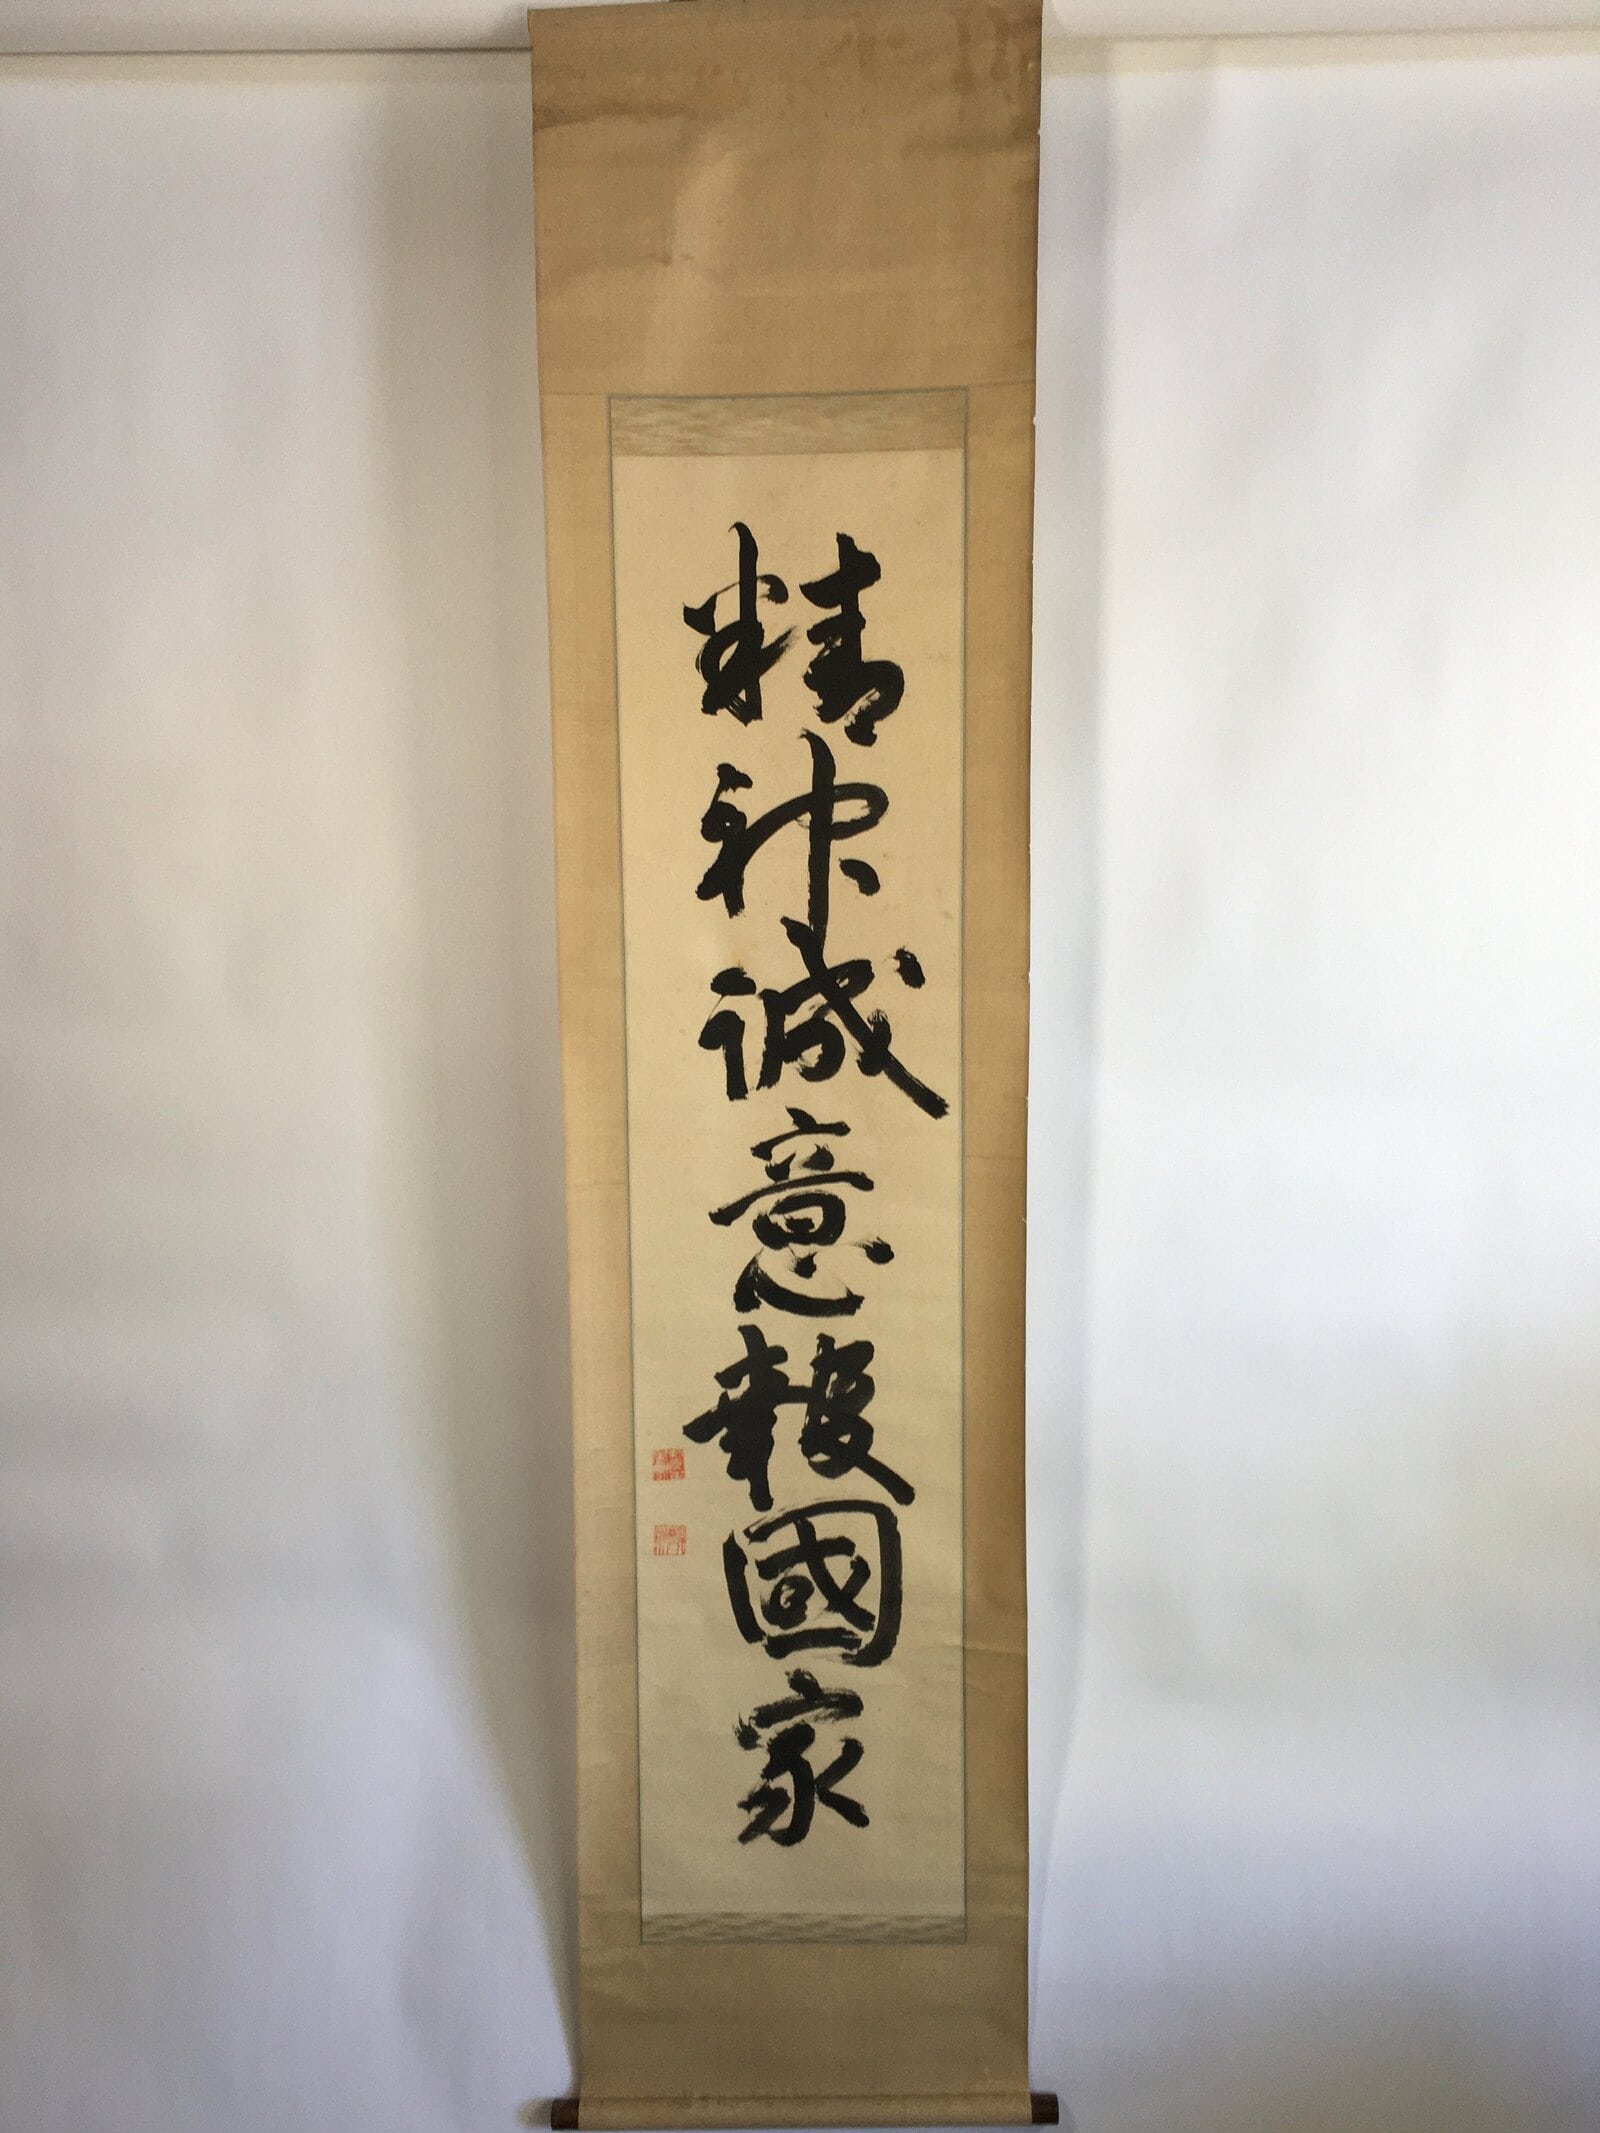 精神誠意報國家